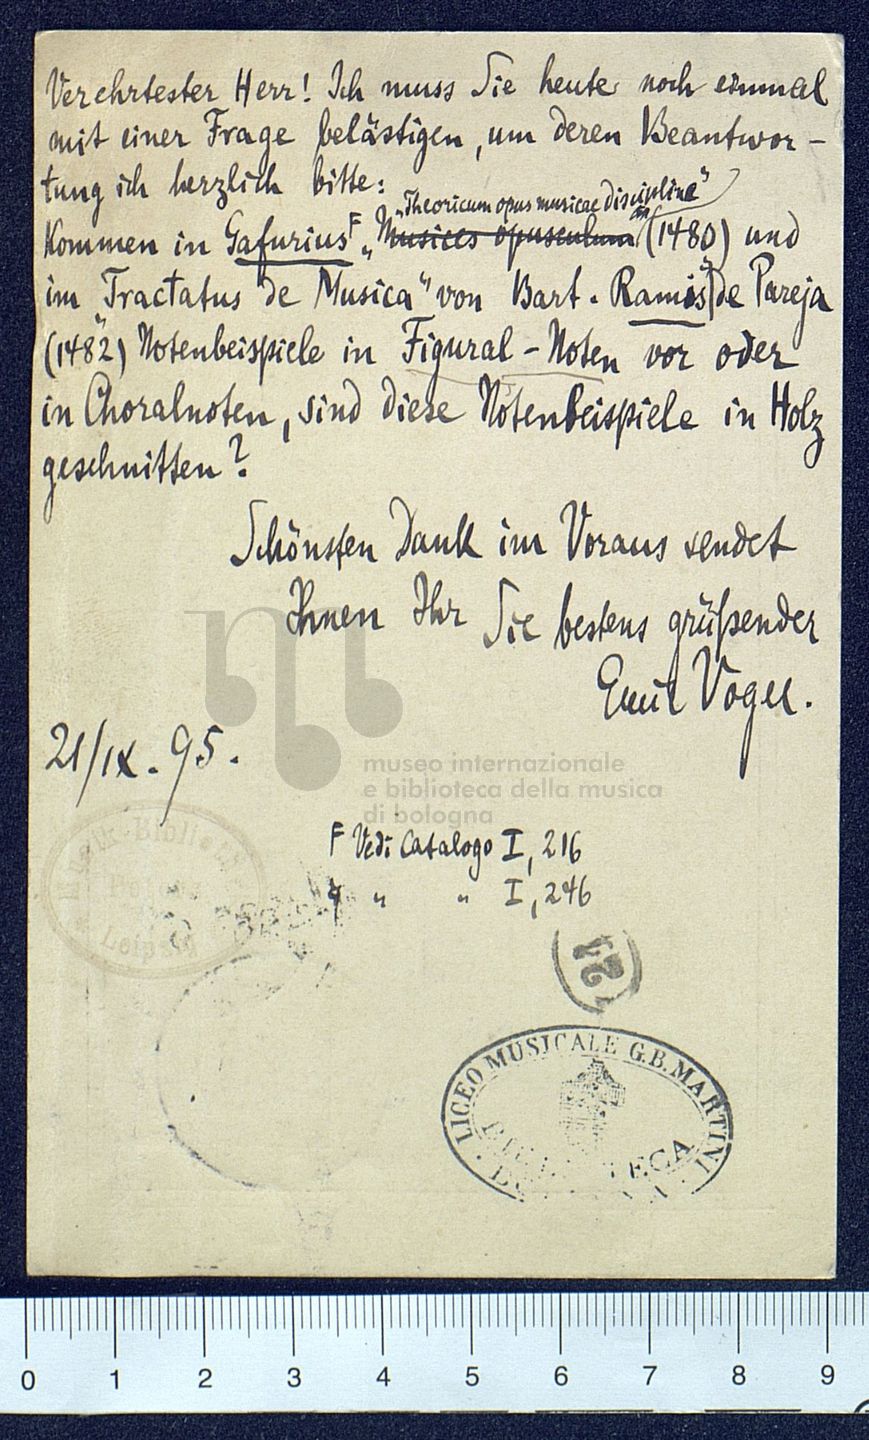 Verehrtester Herr! Ich muss Sie heute noch einmal
mit einer Frage belästigen, um deren Beantwor-
tung ich herzlich bitte:
"Theoricum opus musicae discipline"
Kommen in Gafurius F „Musices opusculum" (1480) und
im „Tractatus de Musica" von Bart. Ramis de Pareja
(1482) Notenbeispiele in Figural-Noten vor oder
in Choralnoten, sind diese Notenbeispiele in Holz
geschnitten?
Schönsten Dank im Voraus sendet
Ihnen Ihr Sie bestens grüßender
Emil Vogel.
21/IX. 95.
museo internazionale
e biblioteca della musica
di bologna
F Vedi Catalogo I, 216
" " I, 246
Musik-Bibliothek
Peters
Leipzig
24
LICEO MUSICALE G.B. MARTINI